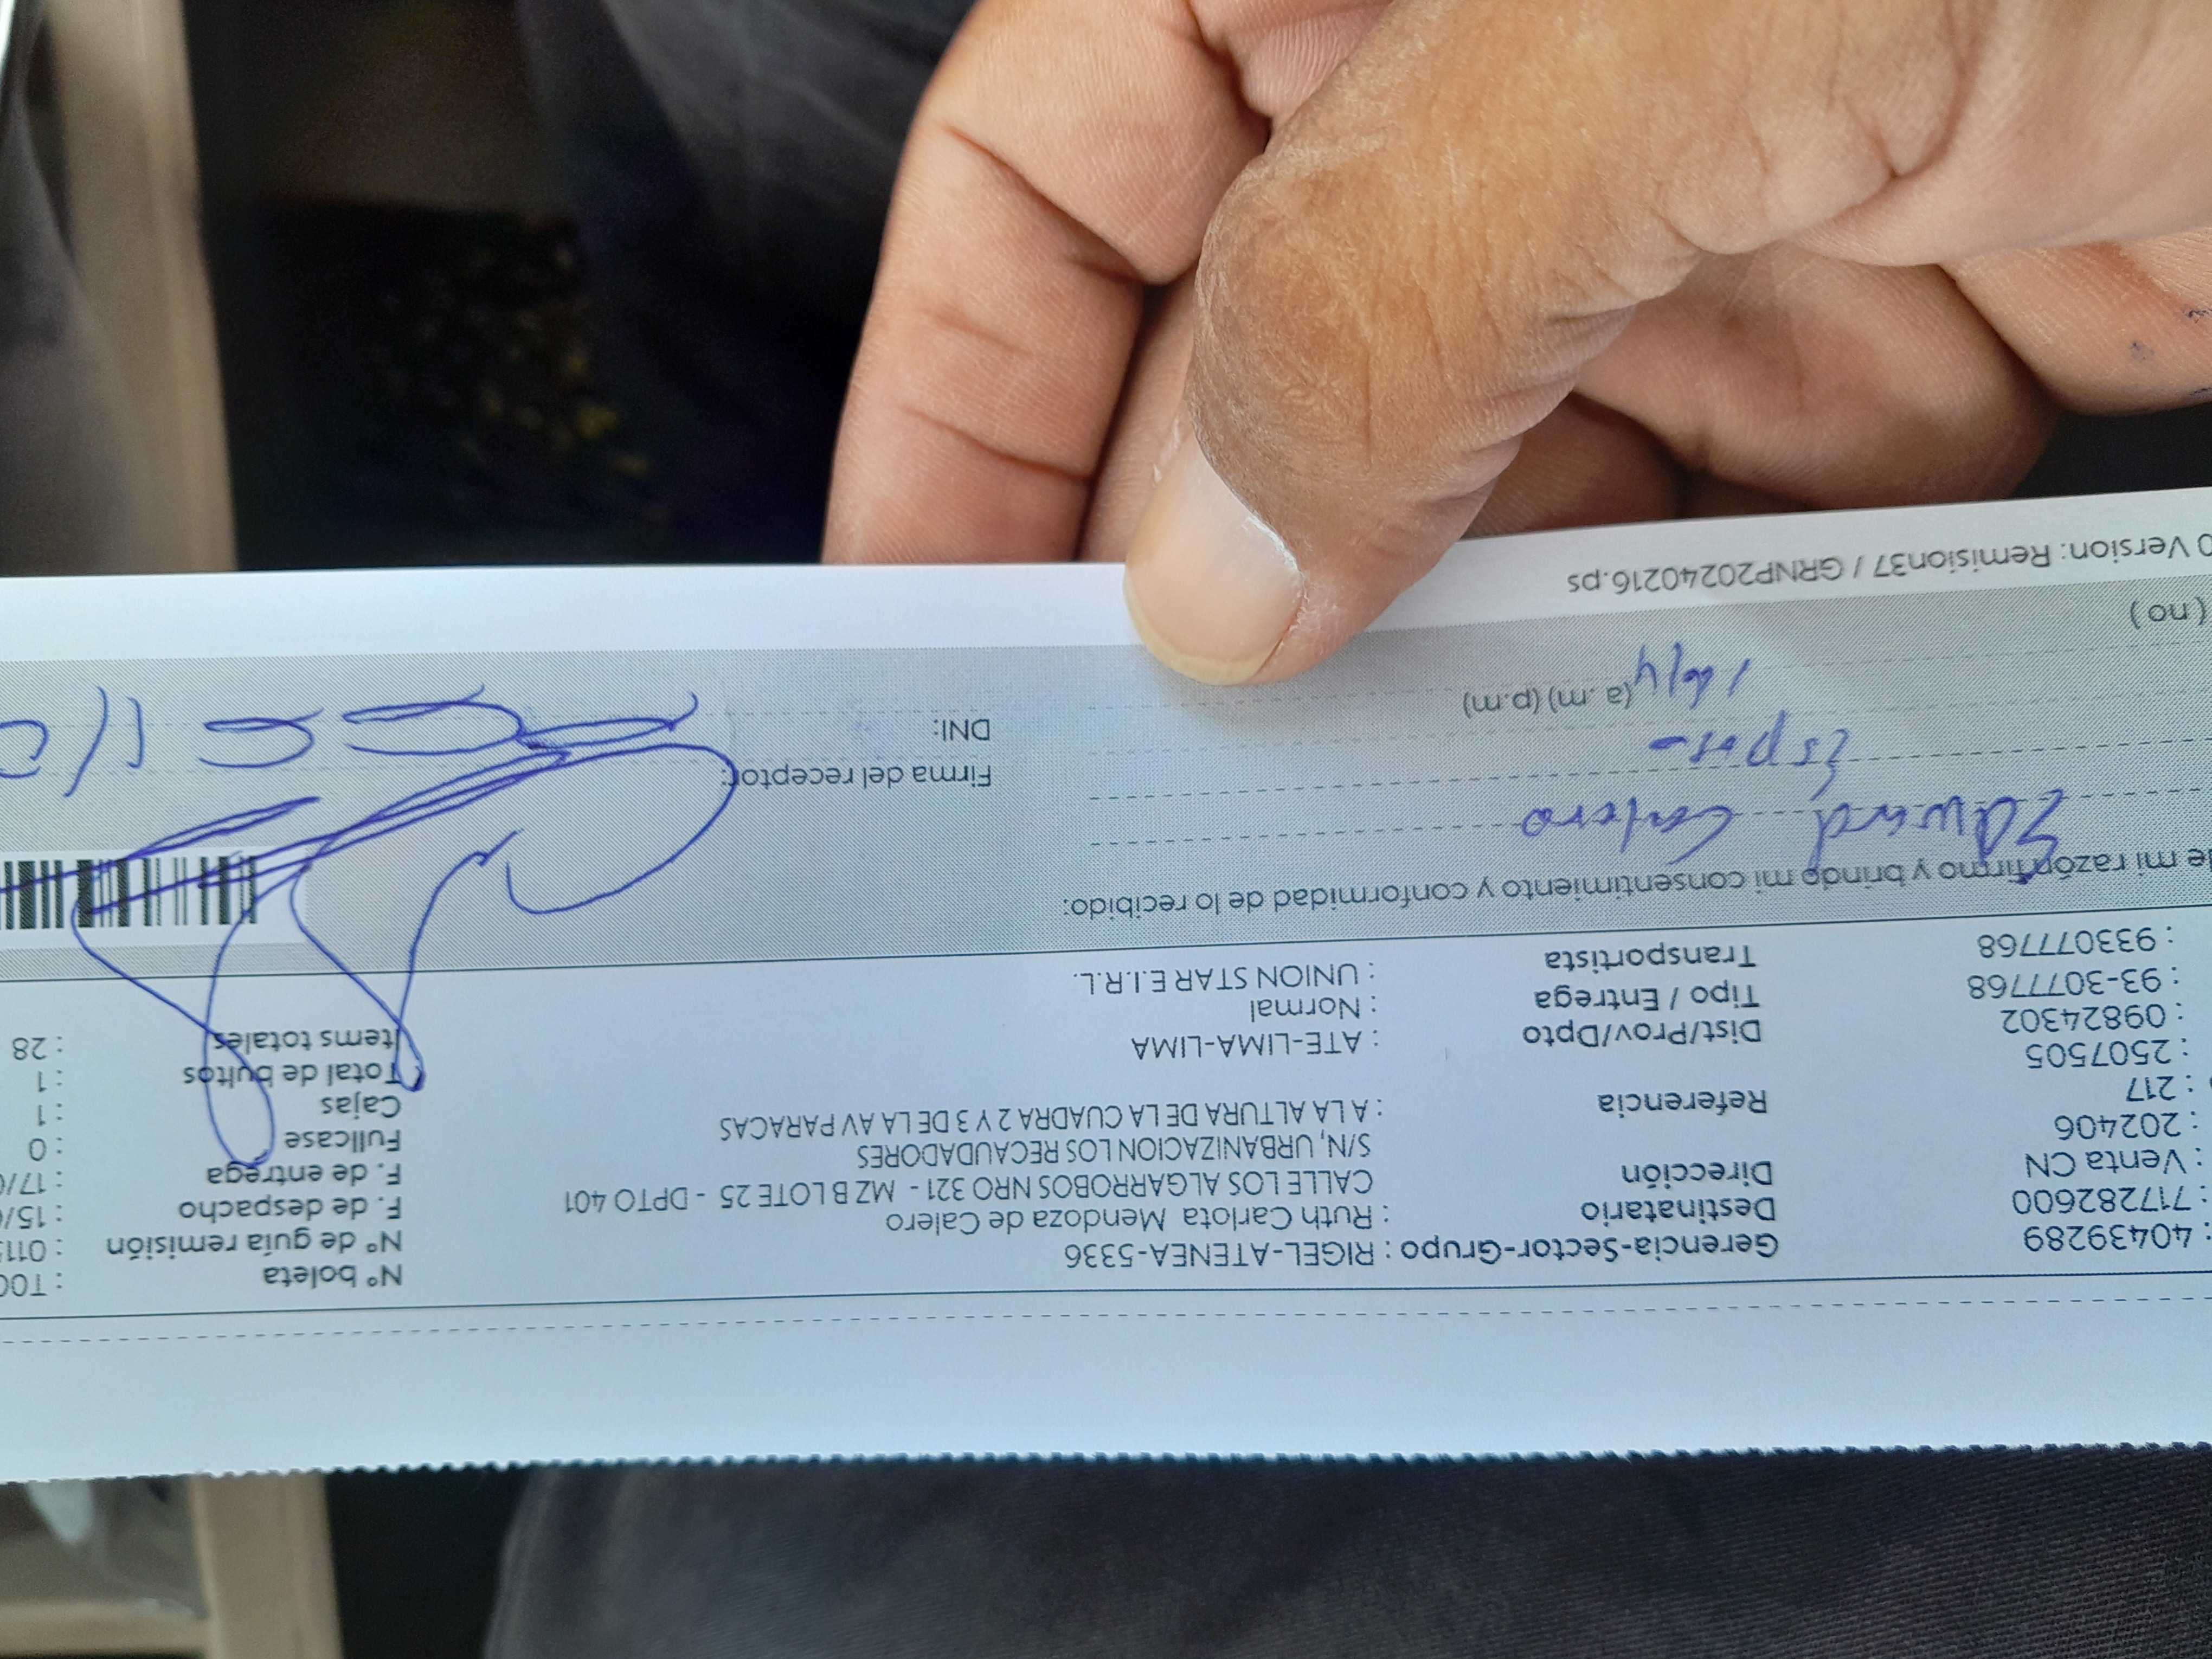 : 40439289 Gerencia-Sector-Grupo : RIGEL-ATENEA-5336 N° boleta : T00
: 717282600 Destinatario : Ruth Carlota Mendoza de Calero N° de guía remisión : 011
: Venta CN Dirección CALLE LOS ALGARROBOS NRO 321 - MZ B LOTE 25 - DPTO 401 F. de despacho : 15/
: 202406 S/N, URBANIZACION LOS RECAUDADORES F. de entrega : 17/
: 217 Referencia : A LA ALTURA DE LA CUADRA 2 Y 3 DE LA AV PARACAS Fullcase : 0
: 2507505 Cajas : 1
: 09824302 Dist/Prov/Dpto : ATE-LIMA-LIMA Total de bultos : 1
: 93-3077768 Tipo / Entrega : Normal Items totales : 28
: 933077768 Transportista : UNION STAR E.I.R.L.
de mi razón firmo y brindo mi consentimiento y conformidad de lo recibido:
Edward
Firma del receptor:
(a.m) (p.m) DNI:
(no)
0 Version: Remision37 / GRNP20240216.ps